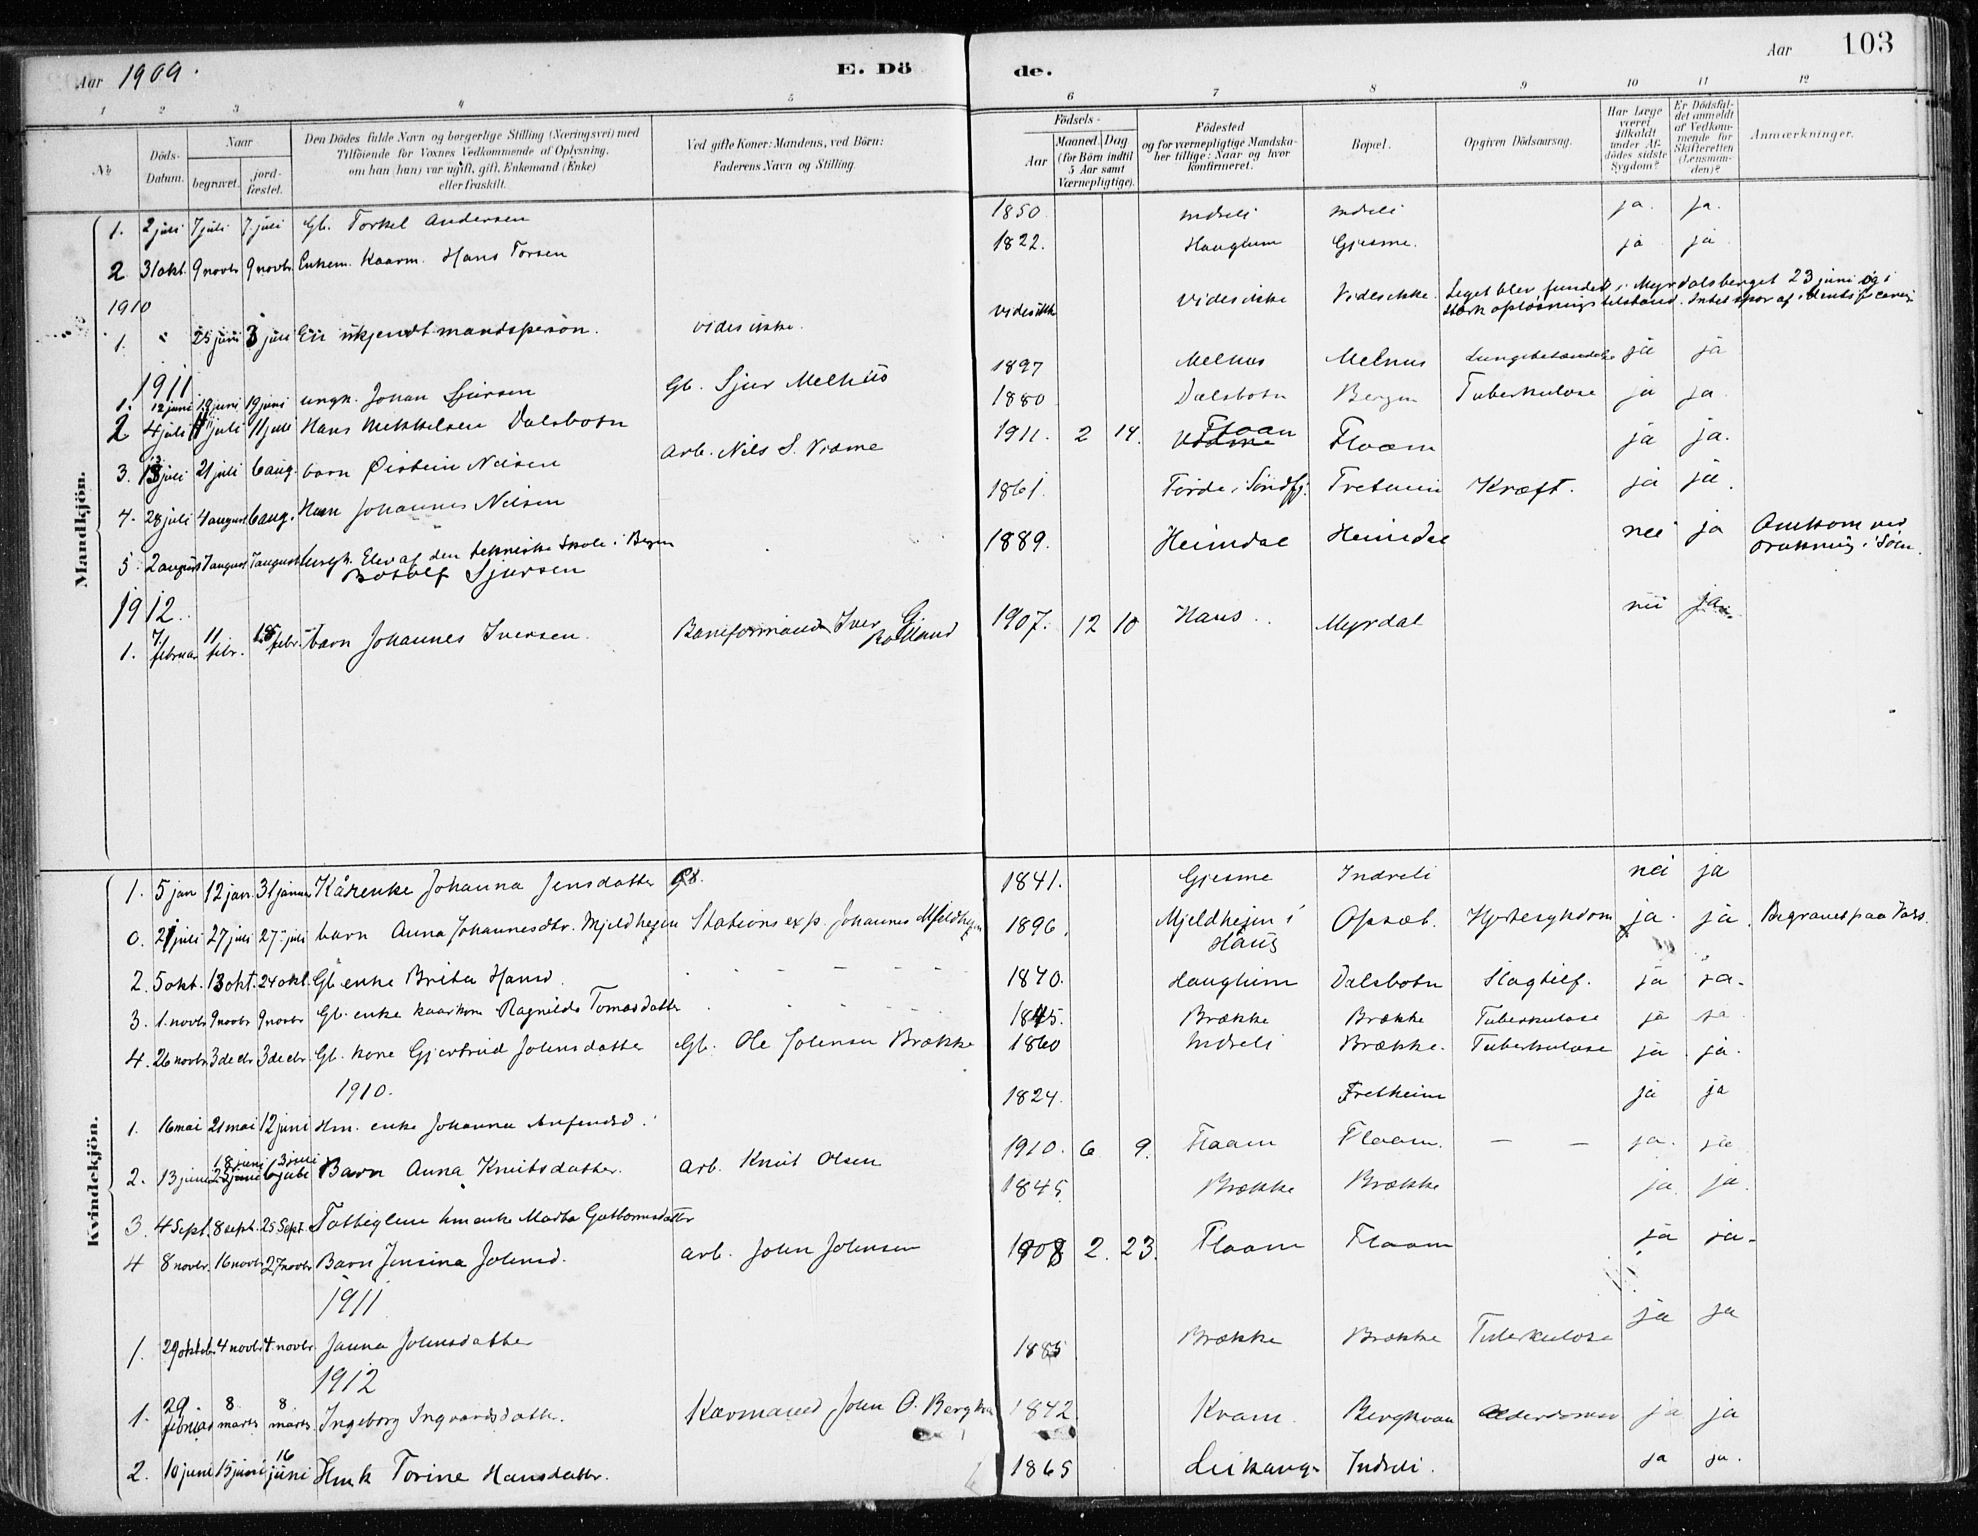 Aar 1909.
E. Döde.
Aar 103
1 2 3 4 5 6 7 8 9 10 11 12
No
Döds-Datum.
Naar
begravet.
jord-fæstet.
Den Dödes fulde Navn og borgerlige Stilling (Næringsvei) med Tilföiende for Voxnes Vedkommende af Oplysning, om han (hun) var ugift, gift, Enkemand (Enke) eller fraskilt.
Ved gifte Koner: Mandens, ved Börn: Faderens Navn og Stilling.
Födsels-
Aar
Maaned. Dag
(for Börn indtil 5 Aar samt Værnepligtige).
Födested og for værnepligtige Mandskaber tillige: Naar og hvor konfirmeret.
Bopæl.
Opgiven Dödsaarsag.
Har Læge været tilkaldt under Afdödes sidste Sygdom?
Er Dödsfaldet anmeldt af Vedkommende for Skifteretten (Lensmanden)?
Anmærkninger.
Mandkjön.
1. 2 juli 7 juli 7 juli Gb. Torkel Andersen 1850 Indreli Indreli ja. ja.
2 31 okt. 9 novbr 9 novbr. Enkem. Kaarm. Hans Torsen 1822. Hauglum Gjesme. ja ja
1910
1. 25 juni 3 juli En ukjendt mandsperson. vides ikke. vides ikke Vides ikke Vides ikke. Liget blev fundet i Myrdalsberget 23 juni og i stærk opløsnings tilstand. Intet spor af identificering
1911
1. 12 juni 19 juni 19 juni ungk. Johan Sjursen Gb. Sjur Melhus 1897 Melhus Melhus Lungebetændelse ja ja
2 4 juli 11 juli 11 juli Hans Mikkelsen Dalsbotn 1880 Dalsbotn Bergen Tuberkulose ja ja.
3. 13 juli 21 juli 6 aug. barn Øistein Nilsen arb. Nils S. Vidme 1911. 2 14. Flaam Flaam ja ja.
4. 28 juli 4 august 6 aug. Johannes Nilsen 1861. Førde i Søndfj. Kræft. ja ja.
5 2 august 7 august 7 august ungk. Elev af den tekniske Skole i Bergen Botolf Sjursen 1889. Heimdal Heimdal nei ja Omkom ved drukning i Søen.
1912.
1. 7/februar 11/febr. 18/febr. barn Johannes Iversen. Baneformand Iver G. Rolland 1907. 12 10 Haus Myrdal nei ja.
Kvindekjön.
1. 5 jan 12 jan. 31 januar Kårenke Johanna Jensdatter 1841. Gjesme Indreli nei ja
0. 21 juli 27 juli 27 juli barn Anna Johannesdtr. Mjeldheim Stationsexp. Johannes Mjeldheim 1896. Mjeldheim i Haus Opsæt. Hjertesygdom ja. ja. Begravet paa Voss.
2. 5 okt. 13 okt. 24 okt. Gb enke Brita Hansd. 1840. Hauglum Dalsbotn Slagtilf. ja ja.
3. 1. novbr 9 novbr 9 novbr Gb. enke kaarkone Ragnilde Tomasdatter 1845. Brække Brække Tuberkulose ja ja
4. 26 novbr. 3 decbr. 3 decbr. Gb. kone Gjertrud Johnsdatter Gb. Ole Johnsen Brække 1860 Indreli Brække. Tuberkulose ja ja.
1910.
1. 16 mai 21 mai 12 juni Hm. enke Johanna Anfindsd. 1824. Fretheim ja ja
2. 13 juni 18 juni 3 juli Barn Anna Knutsdatter. arb. Knut Olsen 1910. 6 9. Flaam Flaam. — — ja. ja
3. 4 Sept. 8 sept. 25 Sept. hm enke Marta Gutbormsdatter 1845. Brække Brække ja ja.
4 8 novbr. 16 novbr 27 novbr Barn Jensina Johnsd. arb. John Johnsen 1908 2. 23. Flaam Flaam ja ja.
1911
1. 29 oktobr 4 novbr 4. novbr. Janna Johnsdatter 1885 Brække Brække Tuberkulose ja ja
1912
1. 29. februar 8. marts 8. marts Ingeborg Ingvardsdatter. Kaarmand John O. 1842 Kvam. ja ja
2. 10 juni 15 juni 16 juni Hmk Torine Hansdatter. 1865 Leikanger Indreli. ja ja.